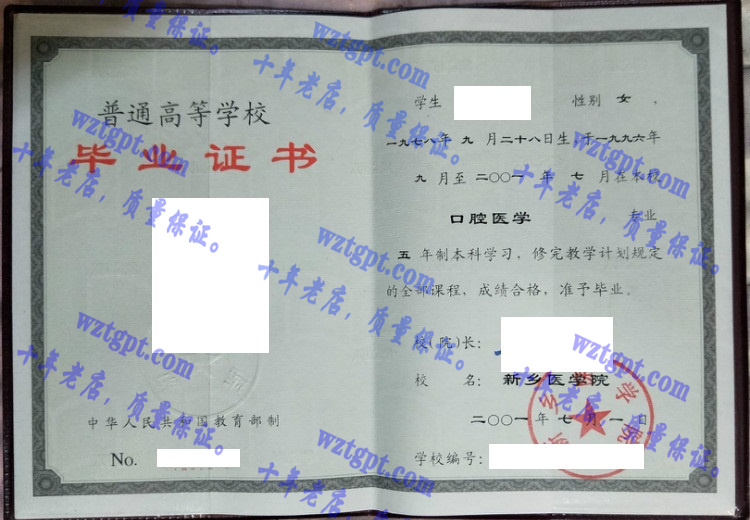 普通高等学校
毕业证书
中华人民共和国教育部制
No.
学生 性别 女 ,
一九七八年 九 月二十八日生,于一九九六年
九 月至 二〇〇一 年 七 月在本校
口腔医学 专业
五 年制本科学习,修完教学计划规定
的全部课程,成绩合格,准予毕业。
校(院)长:
校 名: 新乡医学院
二〇〇一 年 七 月 一 日
学校编号:
新乡医学院
wztgpt.com
十年老店,质量保证。
wztgpt.com
十年老店,质量保证。
wztgpt.com
十年老店,质量保证。
wztgpt.com
十年老店,质量保证。
wztgpt.com
十年老店,质量保证。
wztgpt.com
十年老店,质量保证。
wztgpt.com